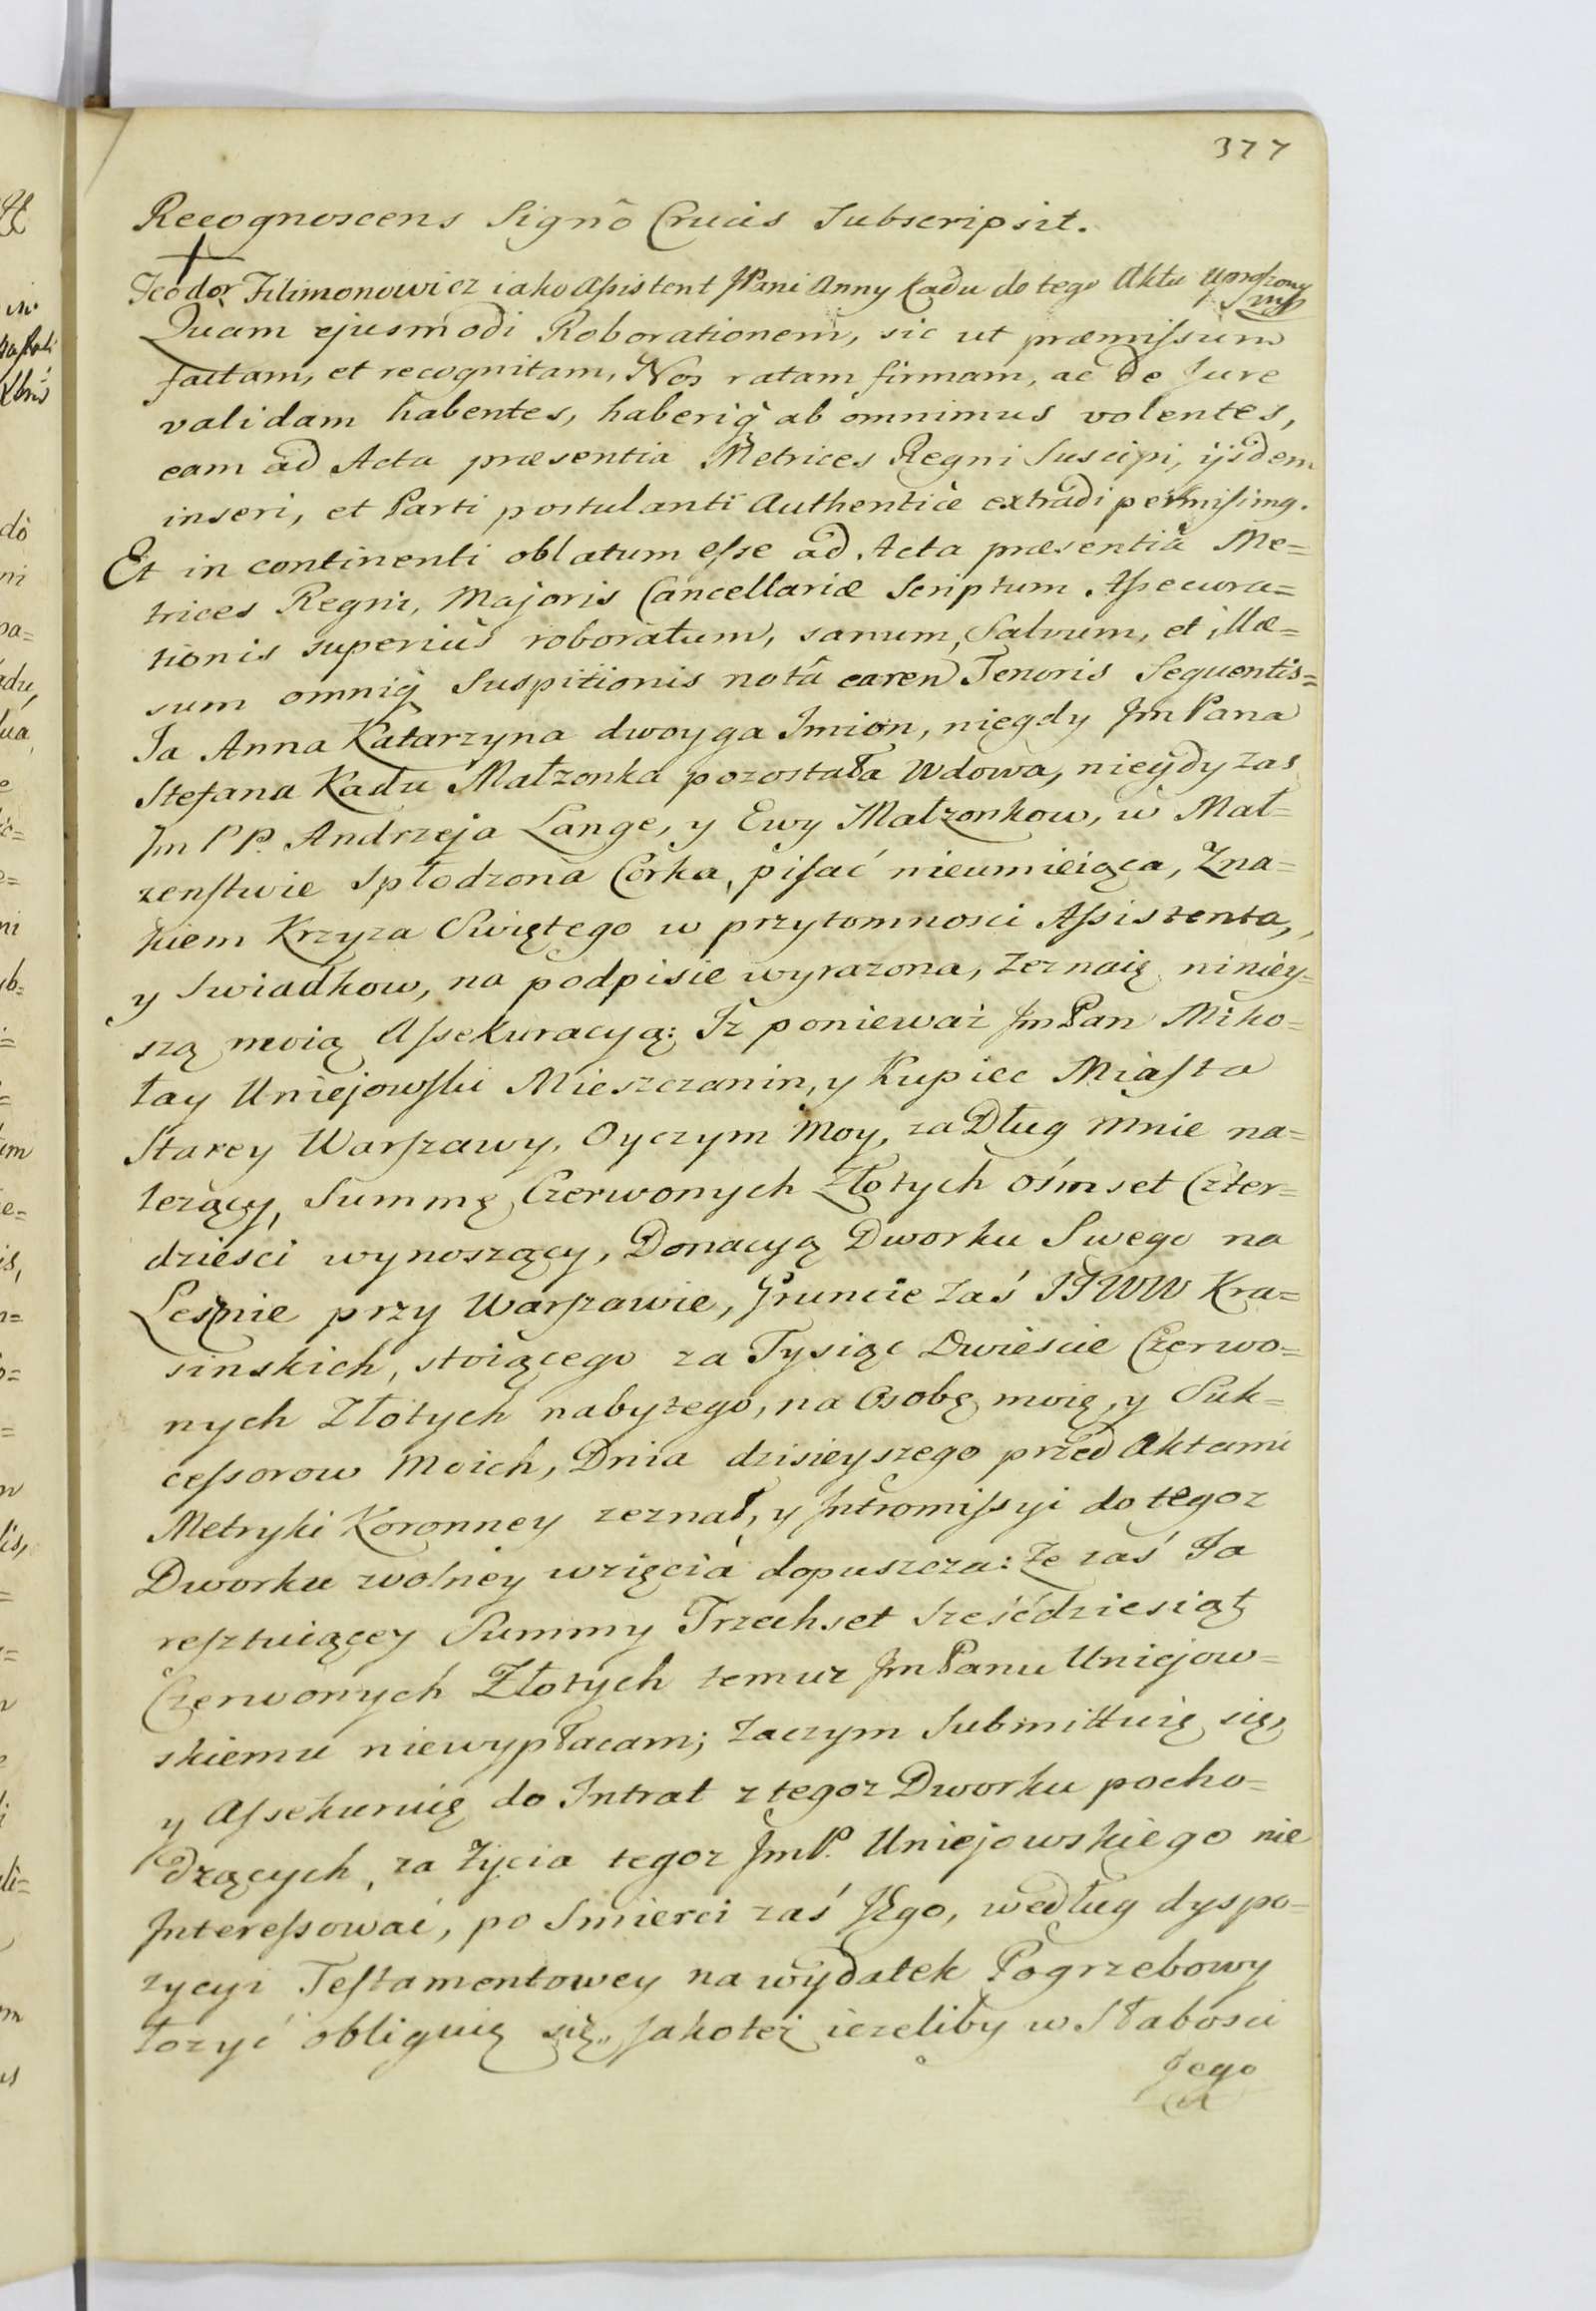 377
Recognoscens Signô Crucis Subscripsit.
+
Teodor Filimonowicz iako Assistent JPani Anny Kadu do tego Aktu uproszony
mpp
Quam ejusmodi Roborationem, sic ut præmissum
factam, et recognitam, Nos ratam firmam, ac de Jure
validam habentes, haberiq̃ ab omnimus volentes,
eam ad Acta præsentia Metrices Regni Suscipi, ijsdem
inseri, et Parti postulanti Authentice extradi permisimq.
Et in continenti oblatum esse ad Acta præsentia Me=
trices Regni, Majoris Cancellariæ Scriptum Assecura=
tionis superius roboratum, sanum, Salvum, et illæ=
sum omniq̃ Suspitionis notâ caren Tenoris Sequentis=
Ja Anna Katarzyna dwoyga Jmion, niegdy Jm Pana
Stefana Kadu Małzonka pozostała Wdowa, niegdy zas
Jm PP. Andrzeja Lange, y Ewy Małzonkow, w Mał=
zenstwie Spłodzona Corka, pisać nieumieiąca, Zna=
kiem Krzyza Swiętego w przytomnosci Assistenta,
y Swiadkow, na podpisie wyrazona, Zeznaię niniey=
szą moią Assekuracyą: Iz ponieważ Jm Pan Miko=
łay Uniejowski Mieszczanin, y Kupiec Miasta
Starey Warszawy, Oyczym Moy, za Dług mnie na=
lezący, Summę Czerwonych Złotych ośmset Czter=
dziesci wynoszący, Donacyą Dworku Swego na
Lesznie przy Warszawie, Gruncie zaś JJWW Kra=
sinskich, stoiącego za Tysiąc Dwieście Czerwo=
nych Złotych nabytego, na Osobę moię, y Suk=
cessorow Moich, Dnia dzisieyszego przed Aktami
Metryki Koronney zeznał, y Intromissyi do tegoz
Dworku wolney wzięcia dopuszcza: Ze zaś Ja
resztuiącey Summy Trzechset Sześćdziesiąt
Czerwonych Złotych temuz Jm Panu Uniejow=
skiemu niewypłacam; Zaczym Submittuię się,
y Assekuruię do Intrat z tegoz Dworku pocho=
dzących, za Zycia tegoz JmP. Uniejowskiego nie
Interessować, po Smierci zaś JEgo, według dyspo=
zycyi Testamentowey na wydatek Pogrzebowy
łozyć obliguię się, Jakoteż iezeliby w Słabosci
Jego